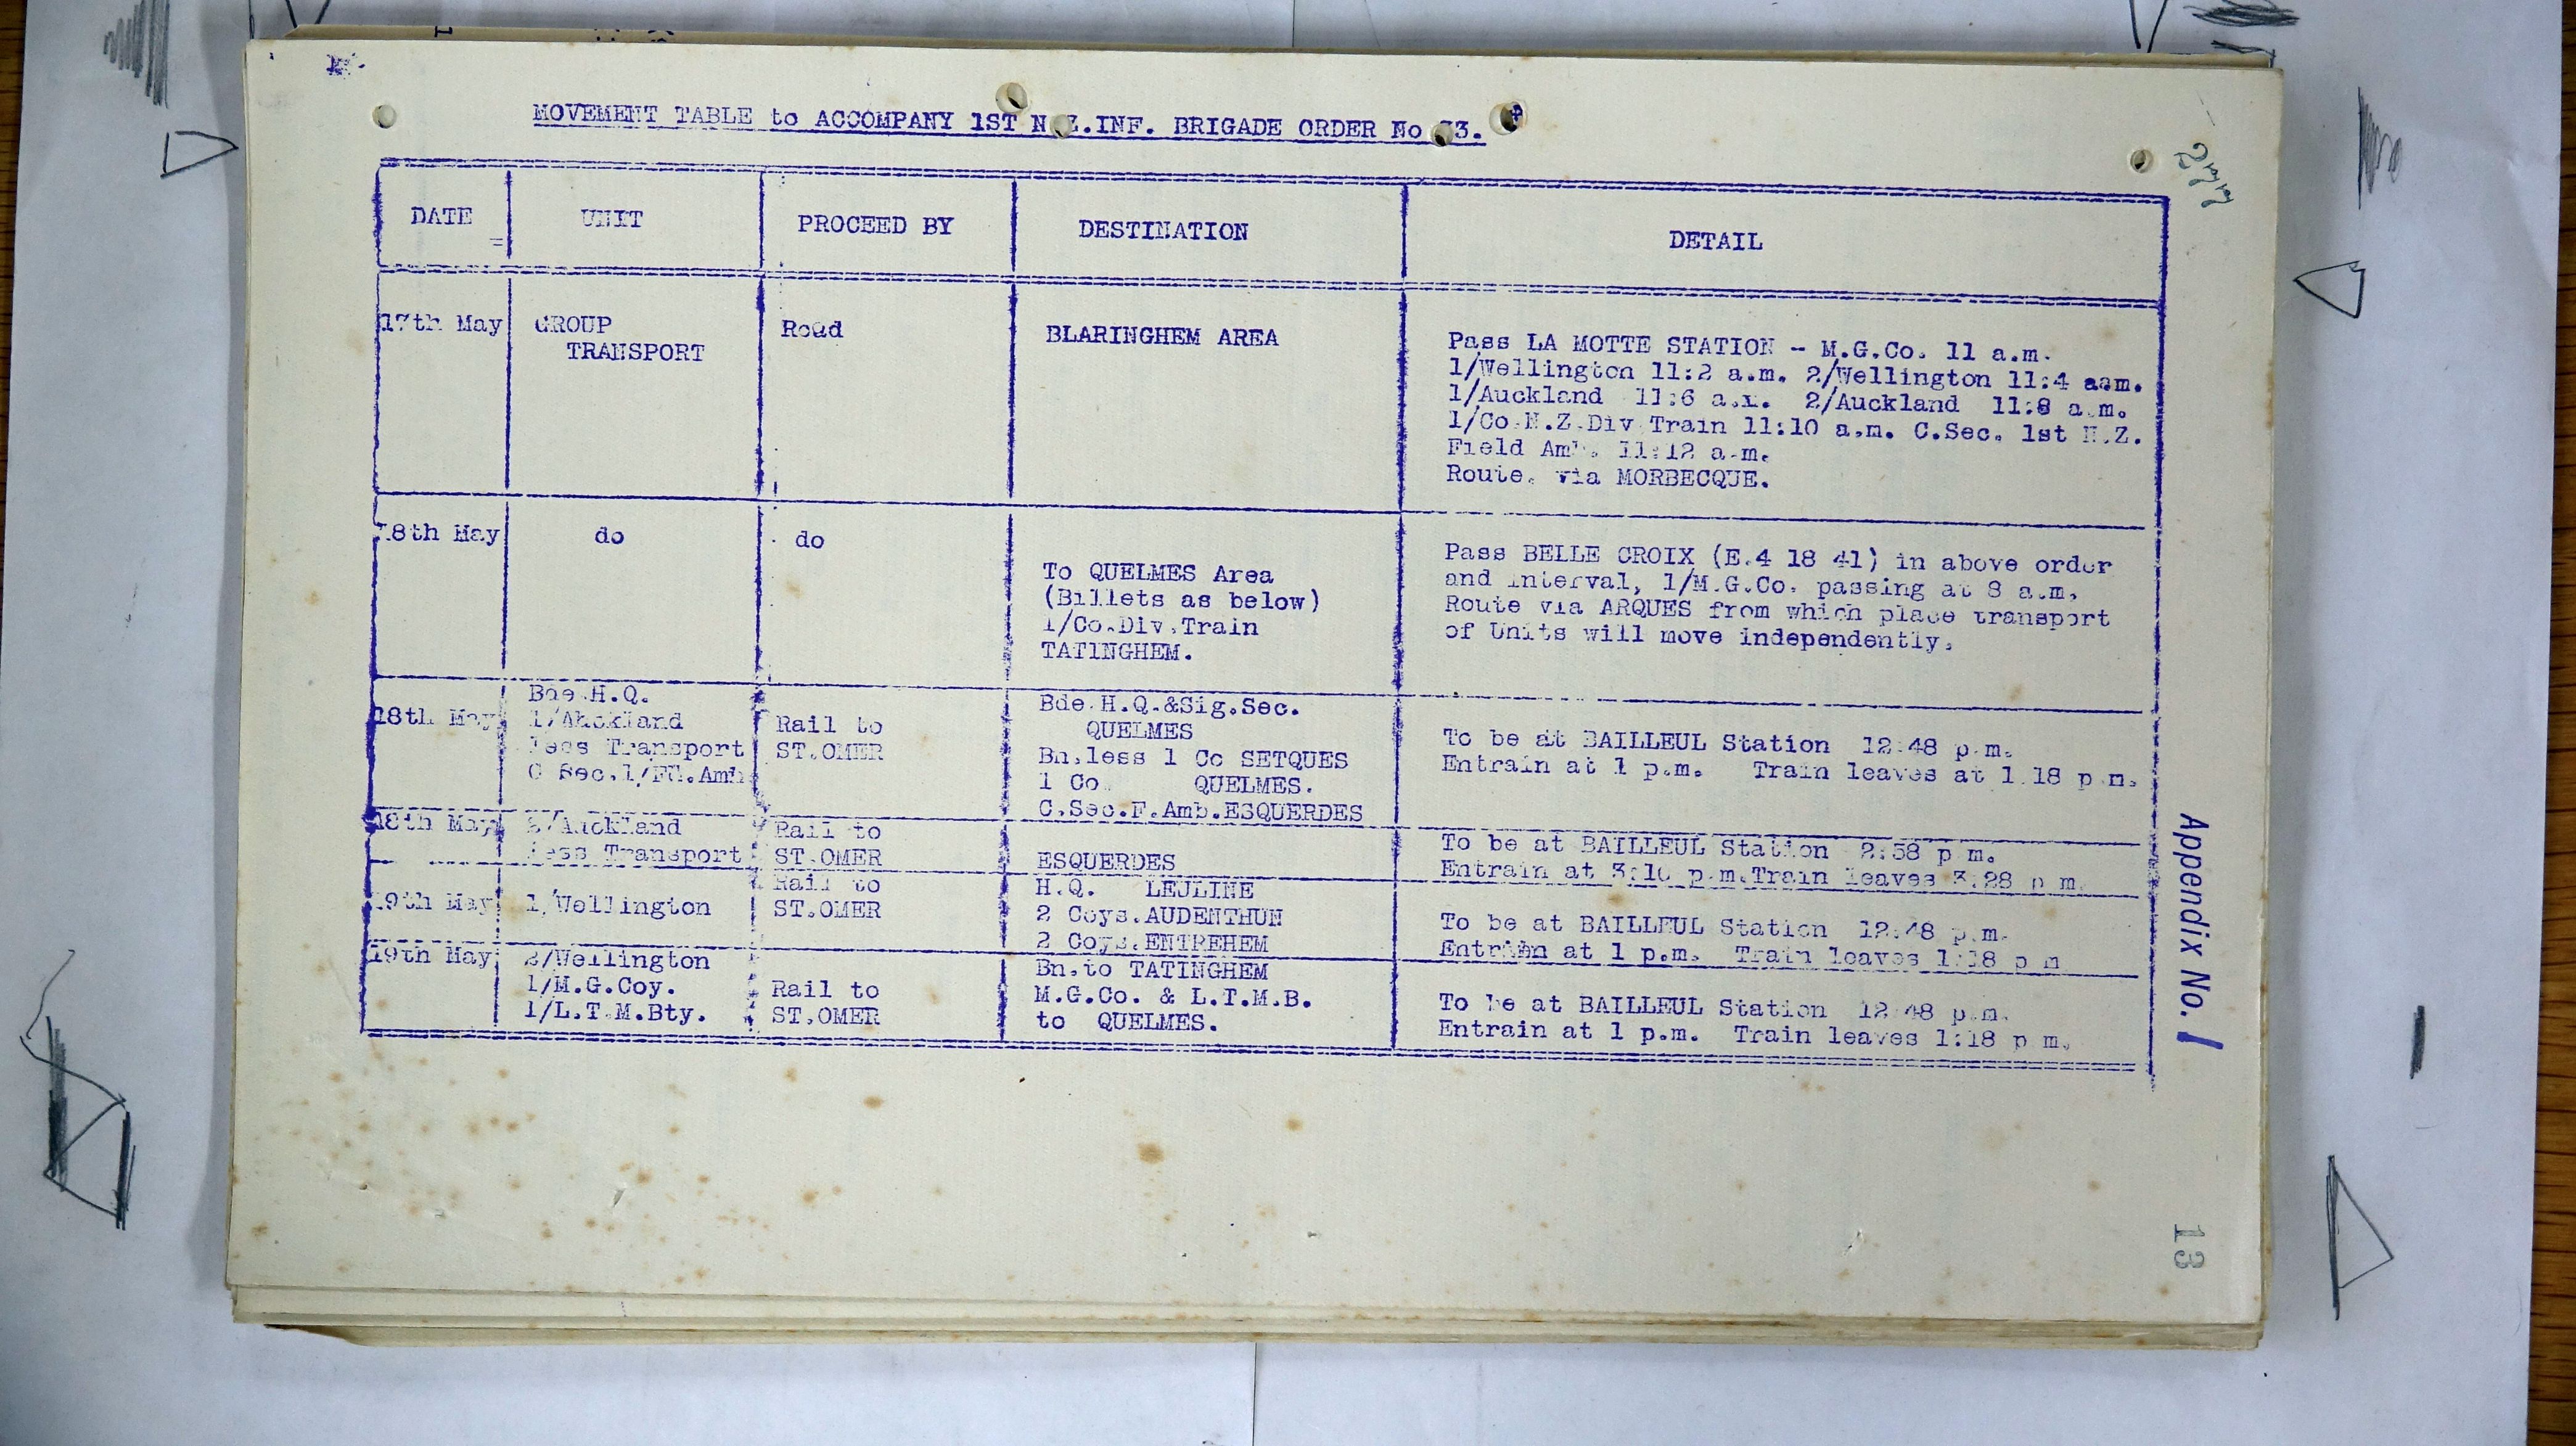 MOVEMENT TABLE to ACCOMPANY 1ST N.Z.INF. BRIGADE ORDER No 3.
DATE UNIT PROCEED BY DESTINATION DETAIL
17th May GROUP TRANSPORT Road BLARINGHEM AREA
Pass LA MOTTE STATION - M.G.Co. 11 a.m.
1/Wellington 11:2 a.m. 2/Wellington 11:4 aam.
1/Auckland 11:6 a.m. 2/Auckland 11:8 a.m.
1/Co.N.Z.Div.Train 11:10 a.m. C.Sec. 1st N.Z.
Field Amb. 11:12 a.m.
Route. via MORBECQUE.
18th May do do
To QUELMES Area
(Billets as below)
1/Co.Div.Train
TATINGHEM.
Pass BELLE CROIX (E.4 18 41) in above order
and interval, 1/M.G.Co. passing at 8 a.m.
Route via ARQUES from which place transport
of Units will move independently.
18th May
Bde H.Q.
1/Auckland
less Transport
C Sec.1/Fd.Amb
Rail to
ST.OMER
Bde H.Q.&Sig.Sec.
QUELMES
Bn.less 1 Co SETQUES
1 Co. QUELMES.
C.Sec.F.Amb.ESQUERDES
To be at BAILLEUL Station 12:48 p.m.
Entrain at 1 p.m. Train leaves at 1.18 p.m.
18th May
2/Auckland
less Transport
Rail to
ST.OMER
ESQUERDES
To be at BAILLEUL Station 2:58 p.m.
Entrain at 3:10 p.m.Train leaves 3.28 p.m.
19th May
1/Wellington
Rail to
ST.OMER
H.Q. LEULINE
2 Coys.AUDENTHUN
2 Coys.ENTREHEM
To be at BAILLEUL Station 12:48 p.m.
Entrain at 1 p.m. Train leaves 1:18 p.m
19th May
2/Wellington
1/M.G.Coy.
1/L.T.M.Bty.
Rail to
ST.OMER
Bn.to TATINGHEM
M.G.Co. & L.T.M.B.
to QUELMES.
To be at BAILLEUL Station 12:48 p.m.
Entrain at 1 p.m. Train leaves 1:18 p.m.
Appendix No. 1
13